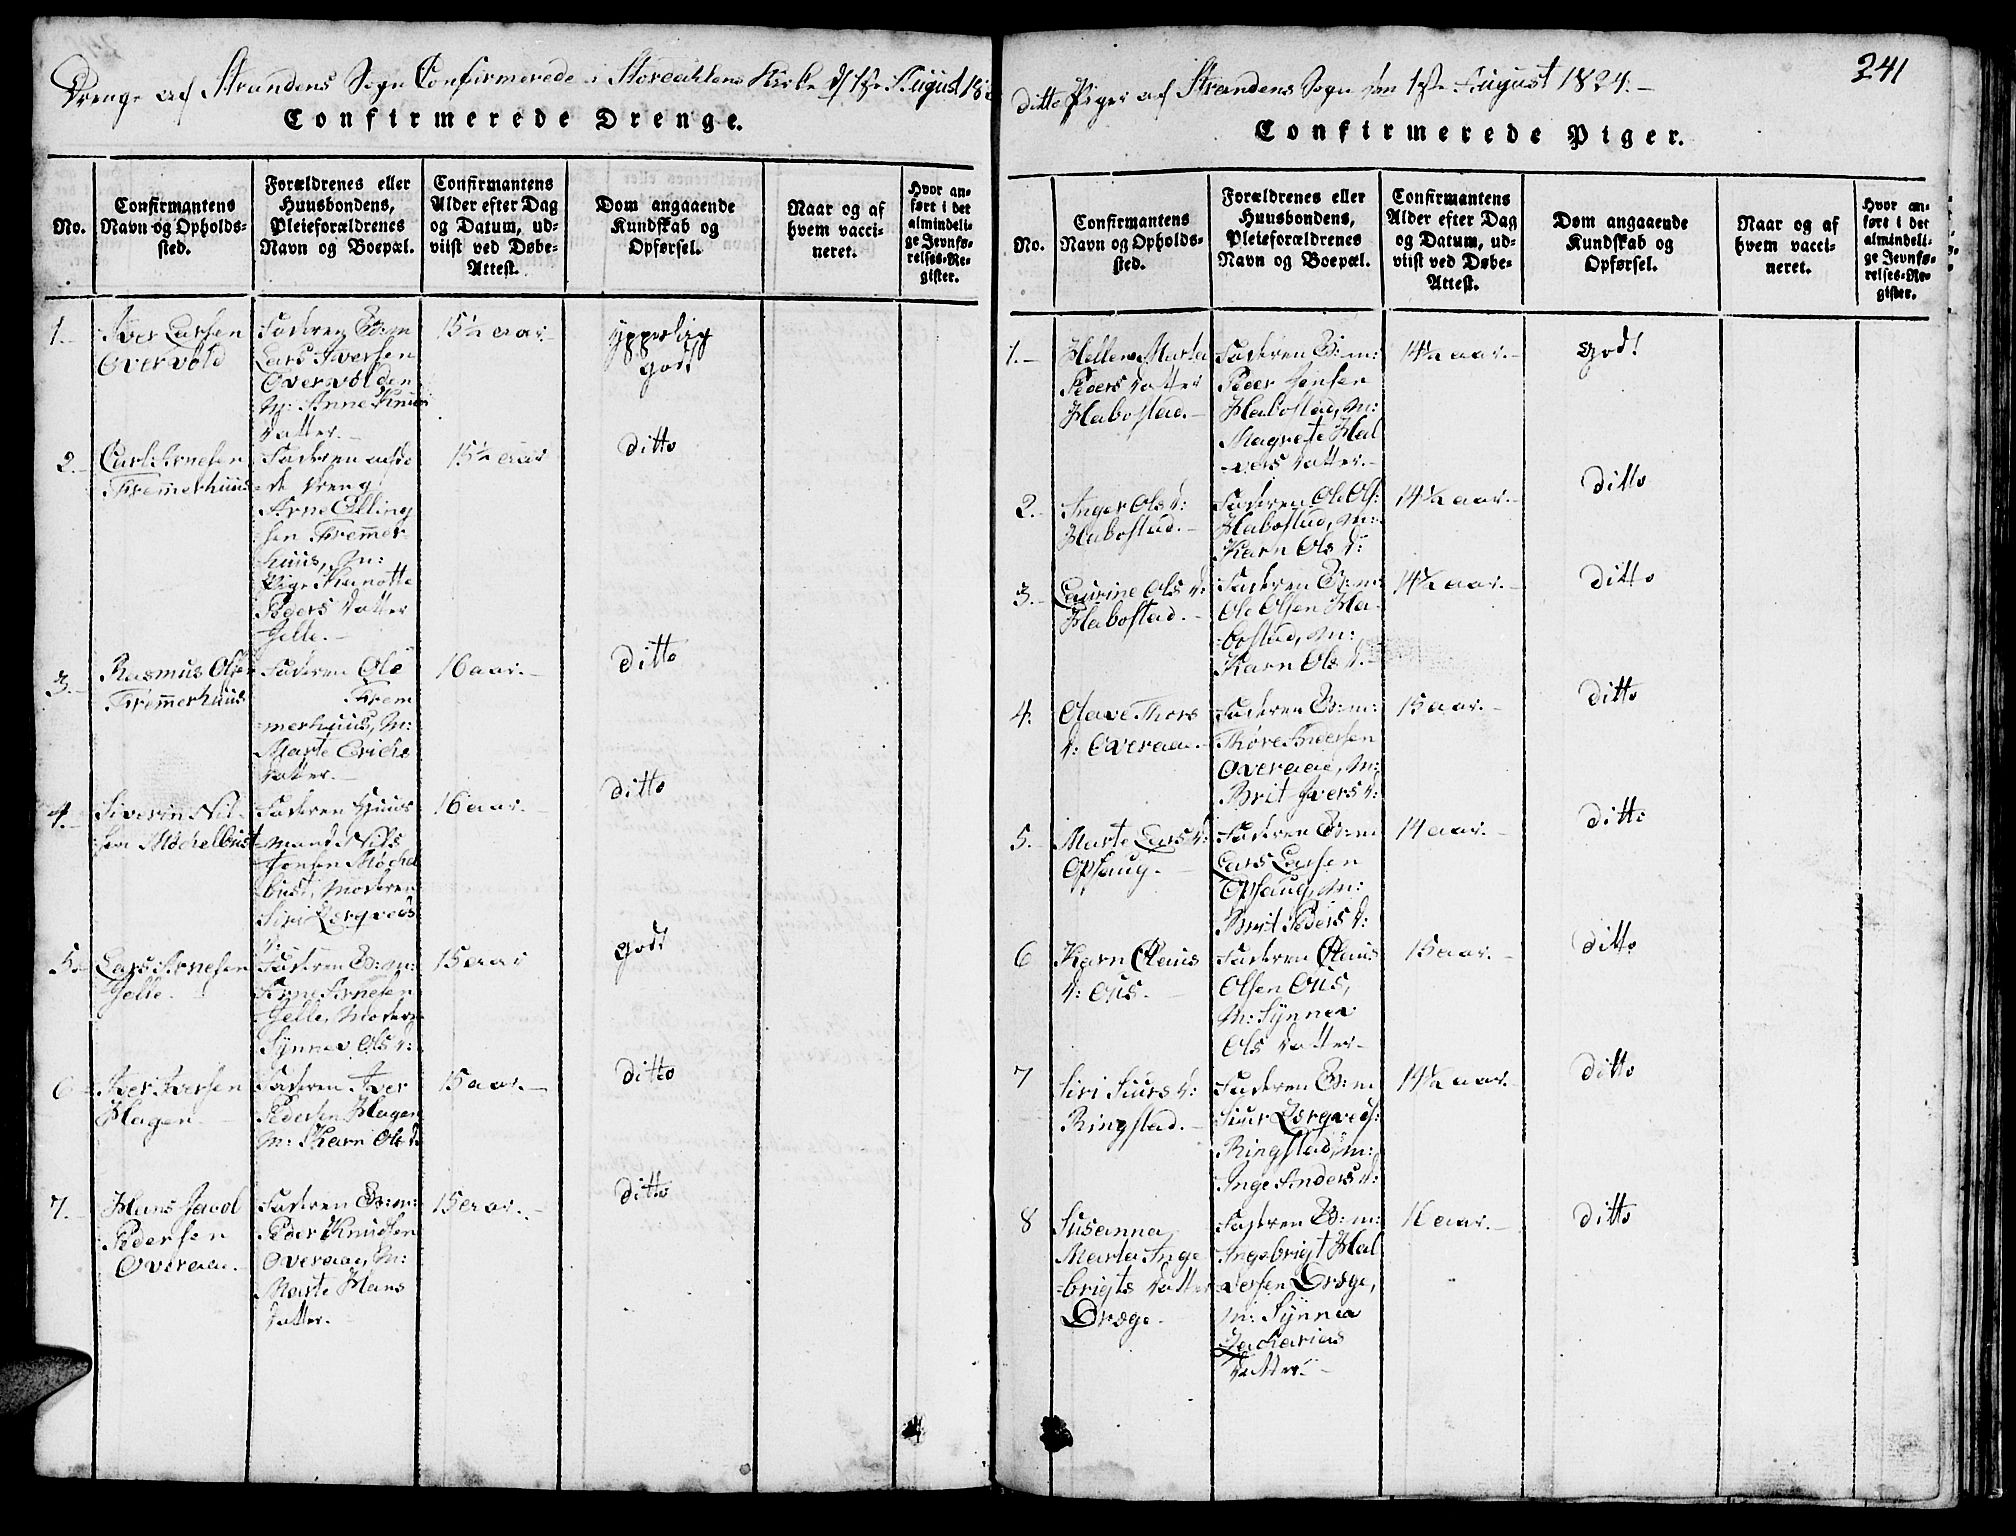 Drenge af Strandens Sogn Confirmerede i Stordahlens Kirke d/ 1ste August 18
Confirmerede Drenge.
No.
Confirmantens
Navn og Opholds-
sted.
Forældrenes eller
Huusbondens,
Pleieforældrenes
Navn og Boepæl.
Confirmantens
Alder efter Dag
og Datum, ud-
viist ved Døbe-
Attest.
Dom angaaende
Kundskab og
Opførsel.
Naar og af
hvem vacci-
neret.
Hvor an-
ført i det
almindeli-
ge Jevnfø-
relses-Re-
gister.
1.-
Iver Larsen
Overvold
Faderen B:m
Lars Iversen
Overvolden
M: Anne Knuds
datter.-
15½ aar.-
ypperlig
godt
2.-
Carl Arnesen
Fremmerhuus
Faderen afdø
de dreng
Arne Elling
sen Fremmer-
huus, M:
Pige Kanotte
Peders datter
Gelle.-
15½ aar
ditto
3.-
Rasmus Olsen
Fremmerhuus
Faderen Ole
Frem
merhuus, M:
Marte Erichs
datter.-
16 aar.-
ditto
4.-
Siverin Nil-
sen Møchelbust
Faderen Huus
mand Nils
Jonsen Møchel
bust, Moderen
Siri Bergveds
d:
16 aar.-
ditto
5.-
Lars Arnesen
Gelle.-
Faderen B:m:
Arne Arnesen
Gelle, Moder
Synnev Ols d:
15 aar
godt
6
Iver Iversen
Hagen.-
Faderen Iver
Pedersen Hagen
M: Karn Ols d.
15 aar.-
ditto
7.-
Hans Jacob
Pedersen
Overaae.-
Faderen B:m:
Peder Knudsen
Overaae, M:
Marte Hans
datter.-
15 aar.-
ditto
241
ditto Piger af Strandens Sogn den 1ste August 1824.-
Confirmerede Piger.
No.
Confirmantens
Navn og Opholds-
sted.
Forældrenes eller
Huusbondens,
Pleieforældrenes
Navn og Boepæl.
Confirmantens
Alder efter Dag
og Datum, ud-
viist ved Døbe-
Attest.
Dom angaaende
Kundskab og
Opførsel.
Naar og af
hvem vacci-
neret.
Hvor an-
ført i det
almindeli-
ge Jevnfø-
relses-Re-
gister.
1.-
Hellene Marta
Peders datter
Habostad.-
Faderen B:m:
Peder Jensen
Habostad, M:
Magrete Hal
vers datter.-
14½ aar.-
God!
2.-
Inger Ols d:
Habostad.-
Faderen Ole Ols:
Habostad, M:
Karn Ols d:
14½ aar.-
ditto
3.-
Laurine Ols d:
Habostad.-
Faderen B:m:
Ole Olsen Ha-
bostad, M:
Karn Ols d.-
14½ aar.-
ditto
4.
Olave Thors
d: Overaae.-
Faderen B:m:
Thore Andersen
Overaae, M:
Brit Ivers d:
15 aar.-
ditto
5.-
Marte Lars d:
Opsaug.-
Faderen B:m
Lars Larsen
Opsaug, M:
Brit Peders d:
14 aar.-
ditto
6
Karn Olaus
d: Ous.-
Faderen Olaus
Olsen Ous,
M: Synnev
Ols datter.-
15 aar.-
ditto
7
Siri Siurs d:
Ringstad.-
Faderen B:m
Siur Bergveds:
Ringstad, M:
Inge Anders d:
14½ aar.-
ditto
8
Susanna
Marta Inge
brigts datter
Dræge.-
Faderen B:m:
Ingebrigt Hal
versen Dræge,
M: Synnea
Zacharias
datter.-
16 aar.-
ditto